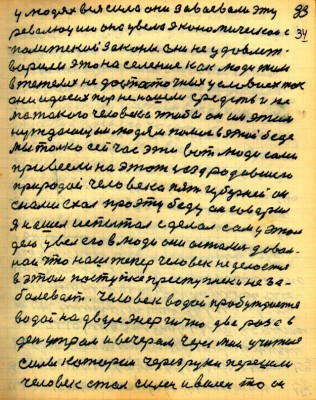 33
у людях вся сила они завоевали эту 34
революцию она увела экономическая с
политекай законы они не удовлет-
ворили это население как люди жили
в тяжелых не достаточных условиях так
они и до сих пор не нашли средств и не
на такого человека чтобы он им этим
нуждающим людям помог в этой беде
мы только сейчас эти вот люди сами
привели на этот уезд родившего
природой человека пять губерней он
сказал про эту беду он говорил
я нашел испытал сделал сам у этом
деле увел его в люди они остались довол-
ной что наш теперь человек не делости
в этом поступке преступник не за-
болевает. Человек водой пробуждается
водой на дворе энергично два раза в
день утром и вечером через мои учител
силы которая через руки перешла
человек стал силен и волен то он